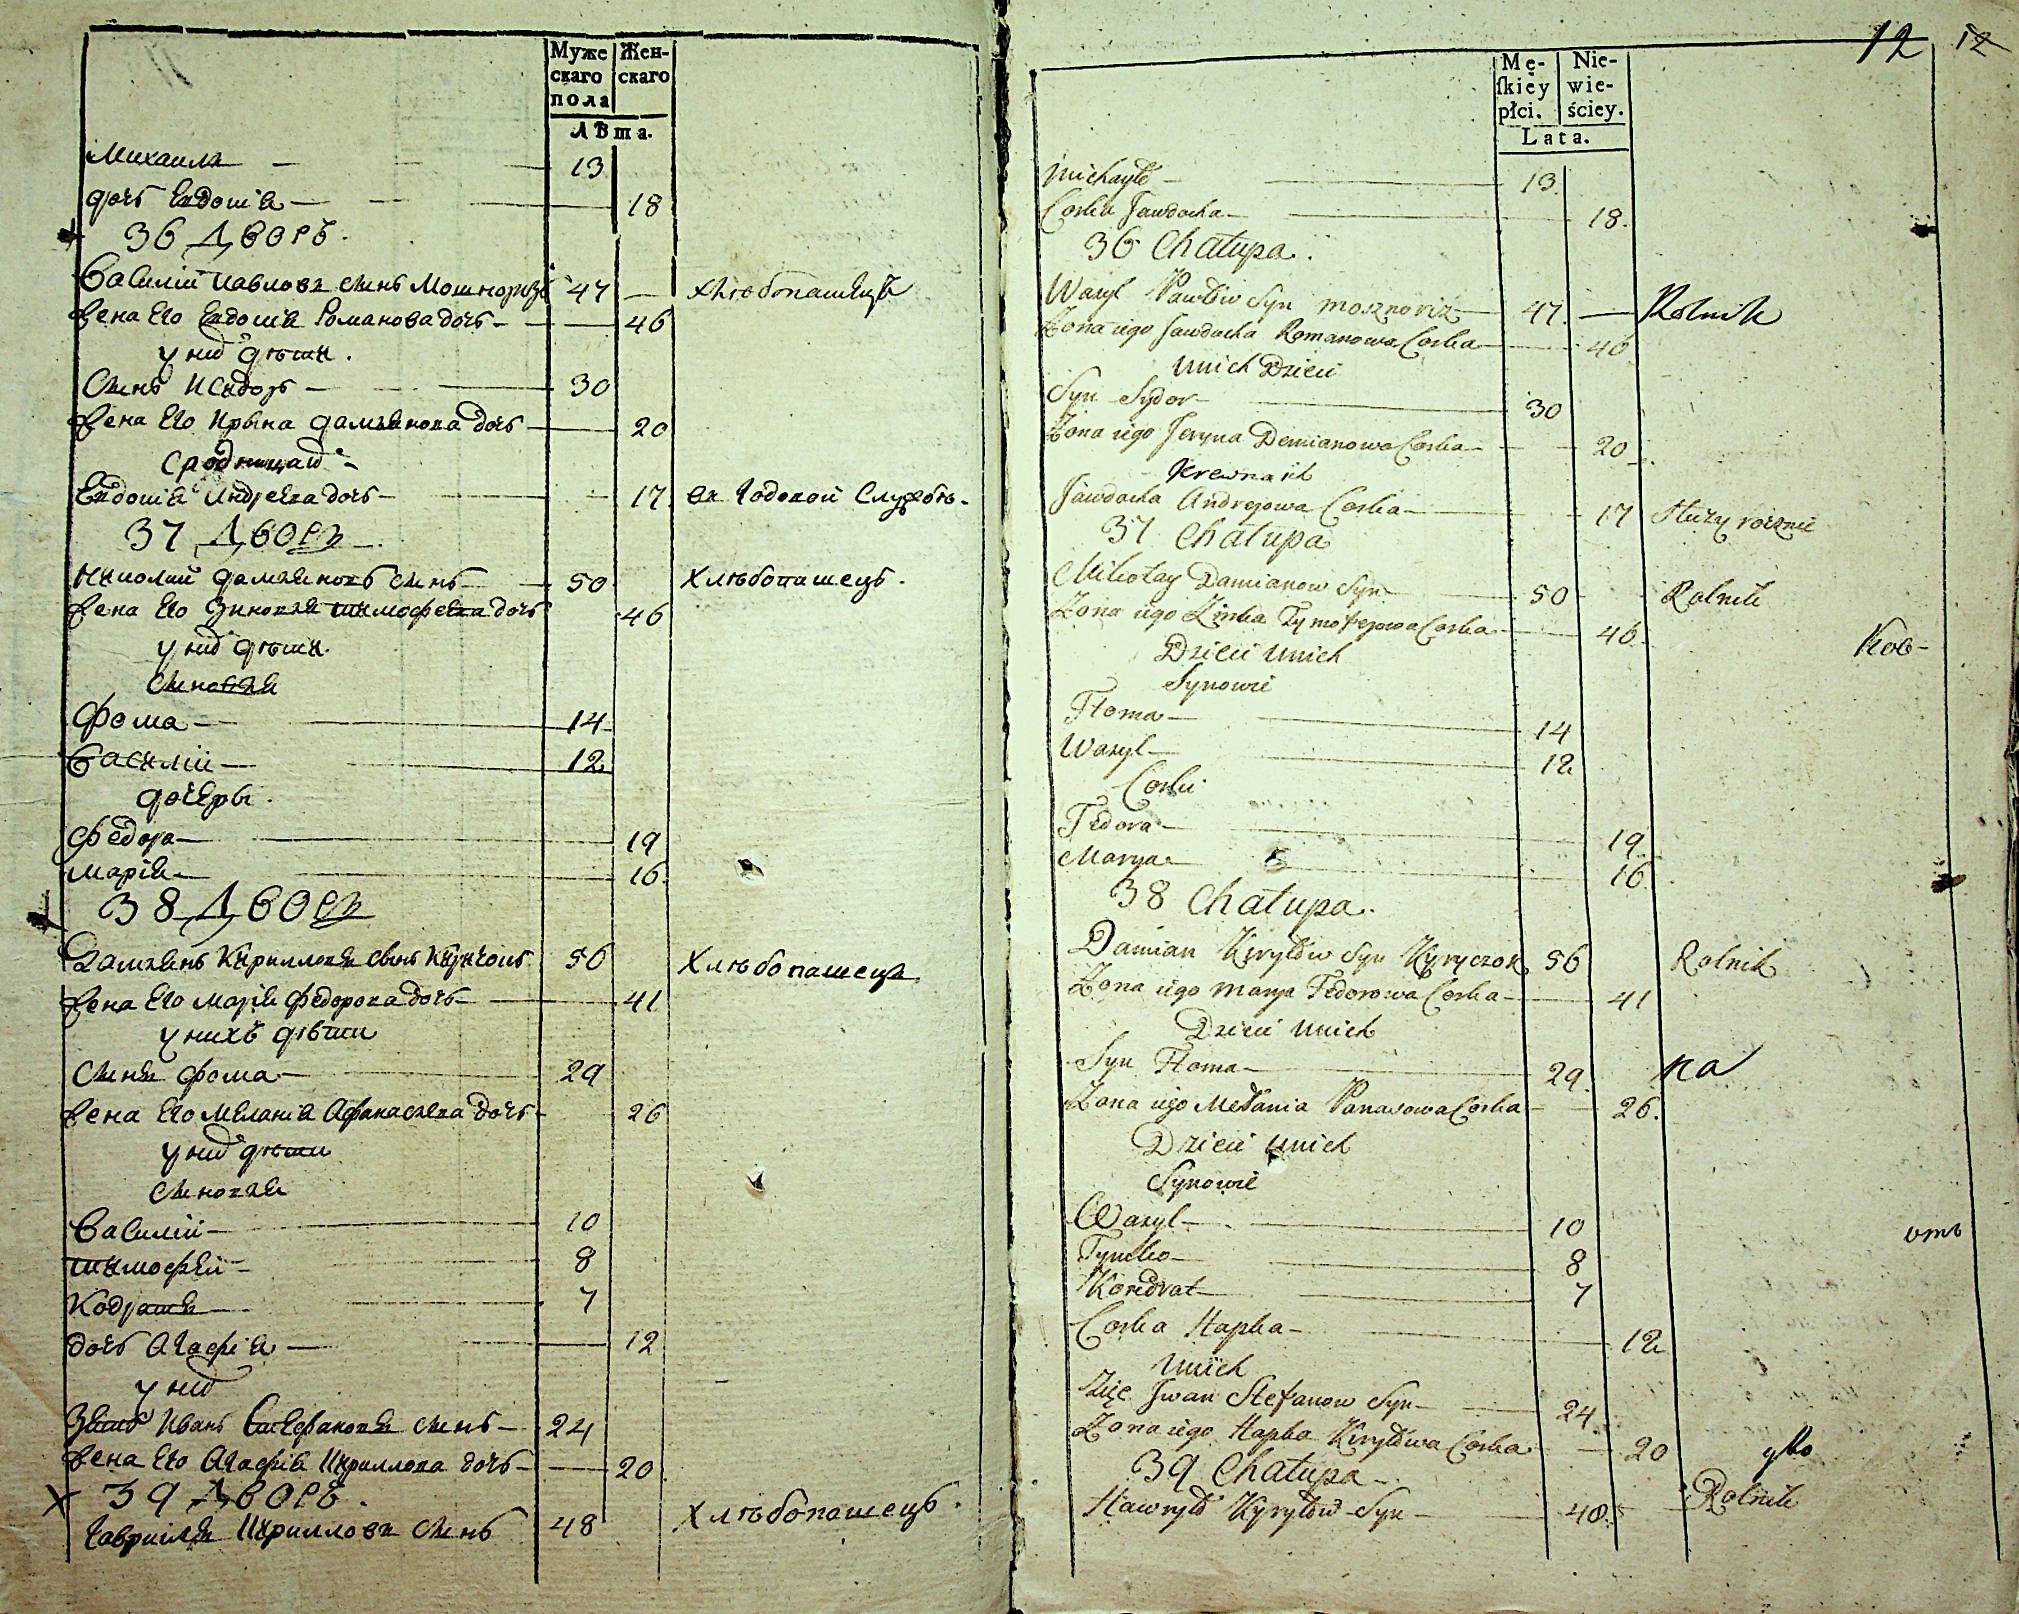 Муже Жен-
скаго скаго
пола
лѣта.
Михаилъ — 13
дочь Евдокія — 18
36 Дворъ.
Василій Павловъ сынъ Мошноризъ 47 — хлѣбопашецъ
жена Его Евдокія Романова дочь — 46
у них дѣти.
Сынъ Исидоръ — 30
жена Его Ирына Даміянова дочь — 20
сродница их
Евдокія Андреева дочь — 17 въ Годовой Службѣ.
37 Дворъ
Николай Даміяновъ сынъ — 50 Хлѣбопашецъ.
жена Его Зиновія Тимофеева дочь 46
у них дѣти.
Сыновья
Фома — 14
Василій — 12
дочеры.
Федора — 19
Марія — 16
38 Дворъ
Даміянъ Кирилловъ сынъ Киричокъ 56 Хлѣбопашецъ
жена Его Марія Федорова дочь — 41
у нихъ дѣти
Сынъ Фома — 29
жена Его Меланія Афанасіева дочь — 26
у них дѣти
Сыновья
Василій — 10
Тимофей — 8
Кодратъ — 7
дочь Агафія — 12
у них
Зять Иванъ Стефановъ сынъ — 24
жена Его Агафія Кириллова дочь — 20
39 Дворъ.
Гавриилъ Кирилловъ сынъ 48 Хлѣбопашецъ.
12 12
Mę- Nie-
ſkiéy wie-
płci. ściey.
Lata.
Michayło — 13.
Corka Jawdocha — 18.
36 Chałupa.
Wasyl Pawłów Syn Mosznoriz 47. — Rolnik
Żona iego Jawdocha Romanowa Corka — 46
Unich Dzieci
Syn Sydor — 30
Żona iego Jeryna Demianowa Corka — 20
Krewna ich
Jawdocha Andrejowa Corka — 17 służy rocznie
37 Chałupa
Mikołay Damianow Syn — 50 Rolnik
Żona iego Zinka Tymofejowa Corka — 46.
Kob-
Dzieci Unich
Synowie
Homa — 14
Wasyl — 12
Corki
Fedora — 19
Marya — 16
38 Chałupa.
Damian Kiryłów Syn Kyryczok 56 Rolnik
Żona iego Marya Fedorowa Corka — 41
Dzieci Unich
Syn Homa — 29. на
Żona iego Mełania Panasowa Corka — 26.
Dzieci Unich
Synowie
Wasyl — 10
Tymko — 8
Kondrat — 7
Corka Hapka — 12
Unich
Zięć Jwan Stefanow Syn — 24
Żona iego Hapka Kiryłowa Corka — 20
39 Chałupa
Hawryło Kyryłow Syn — 48 Rolnik